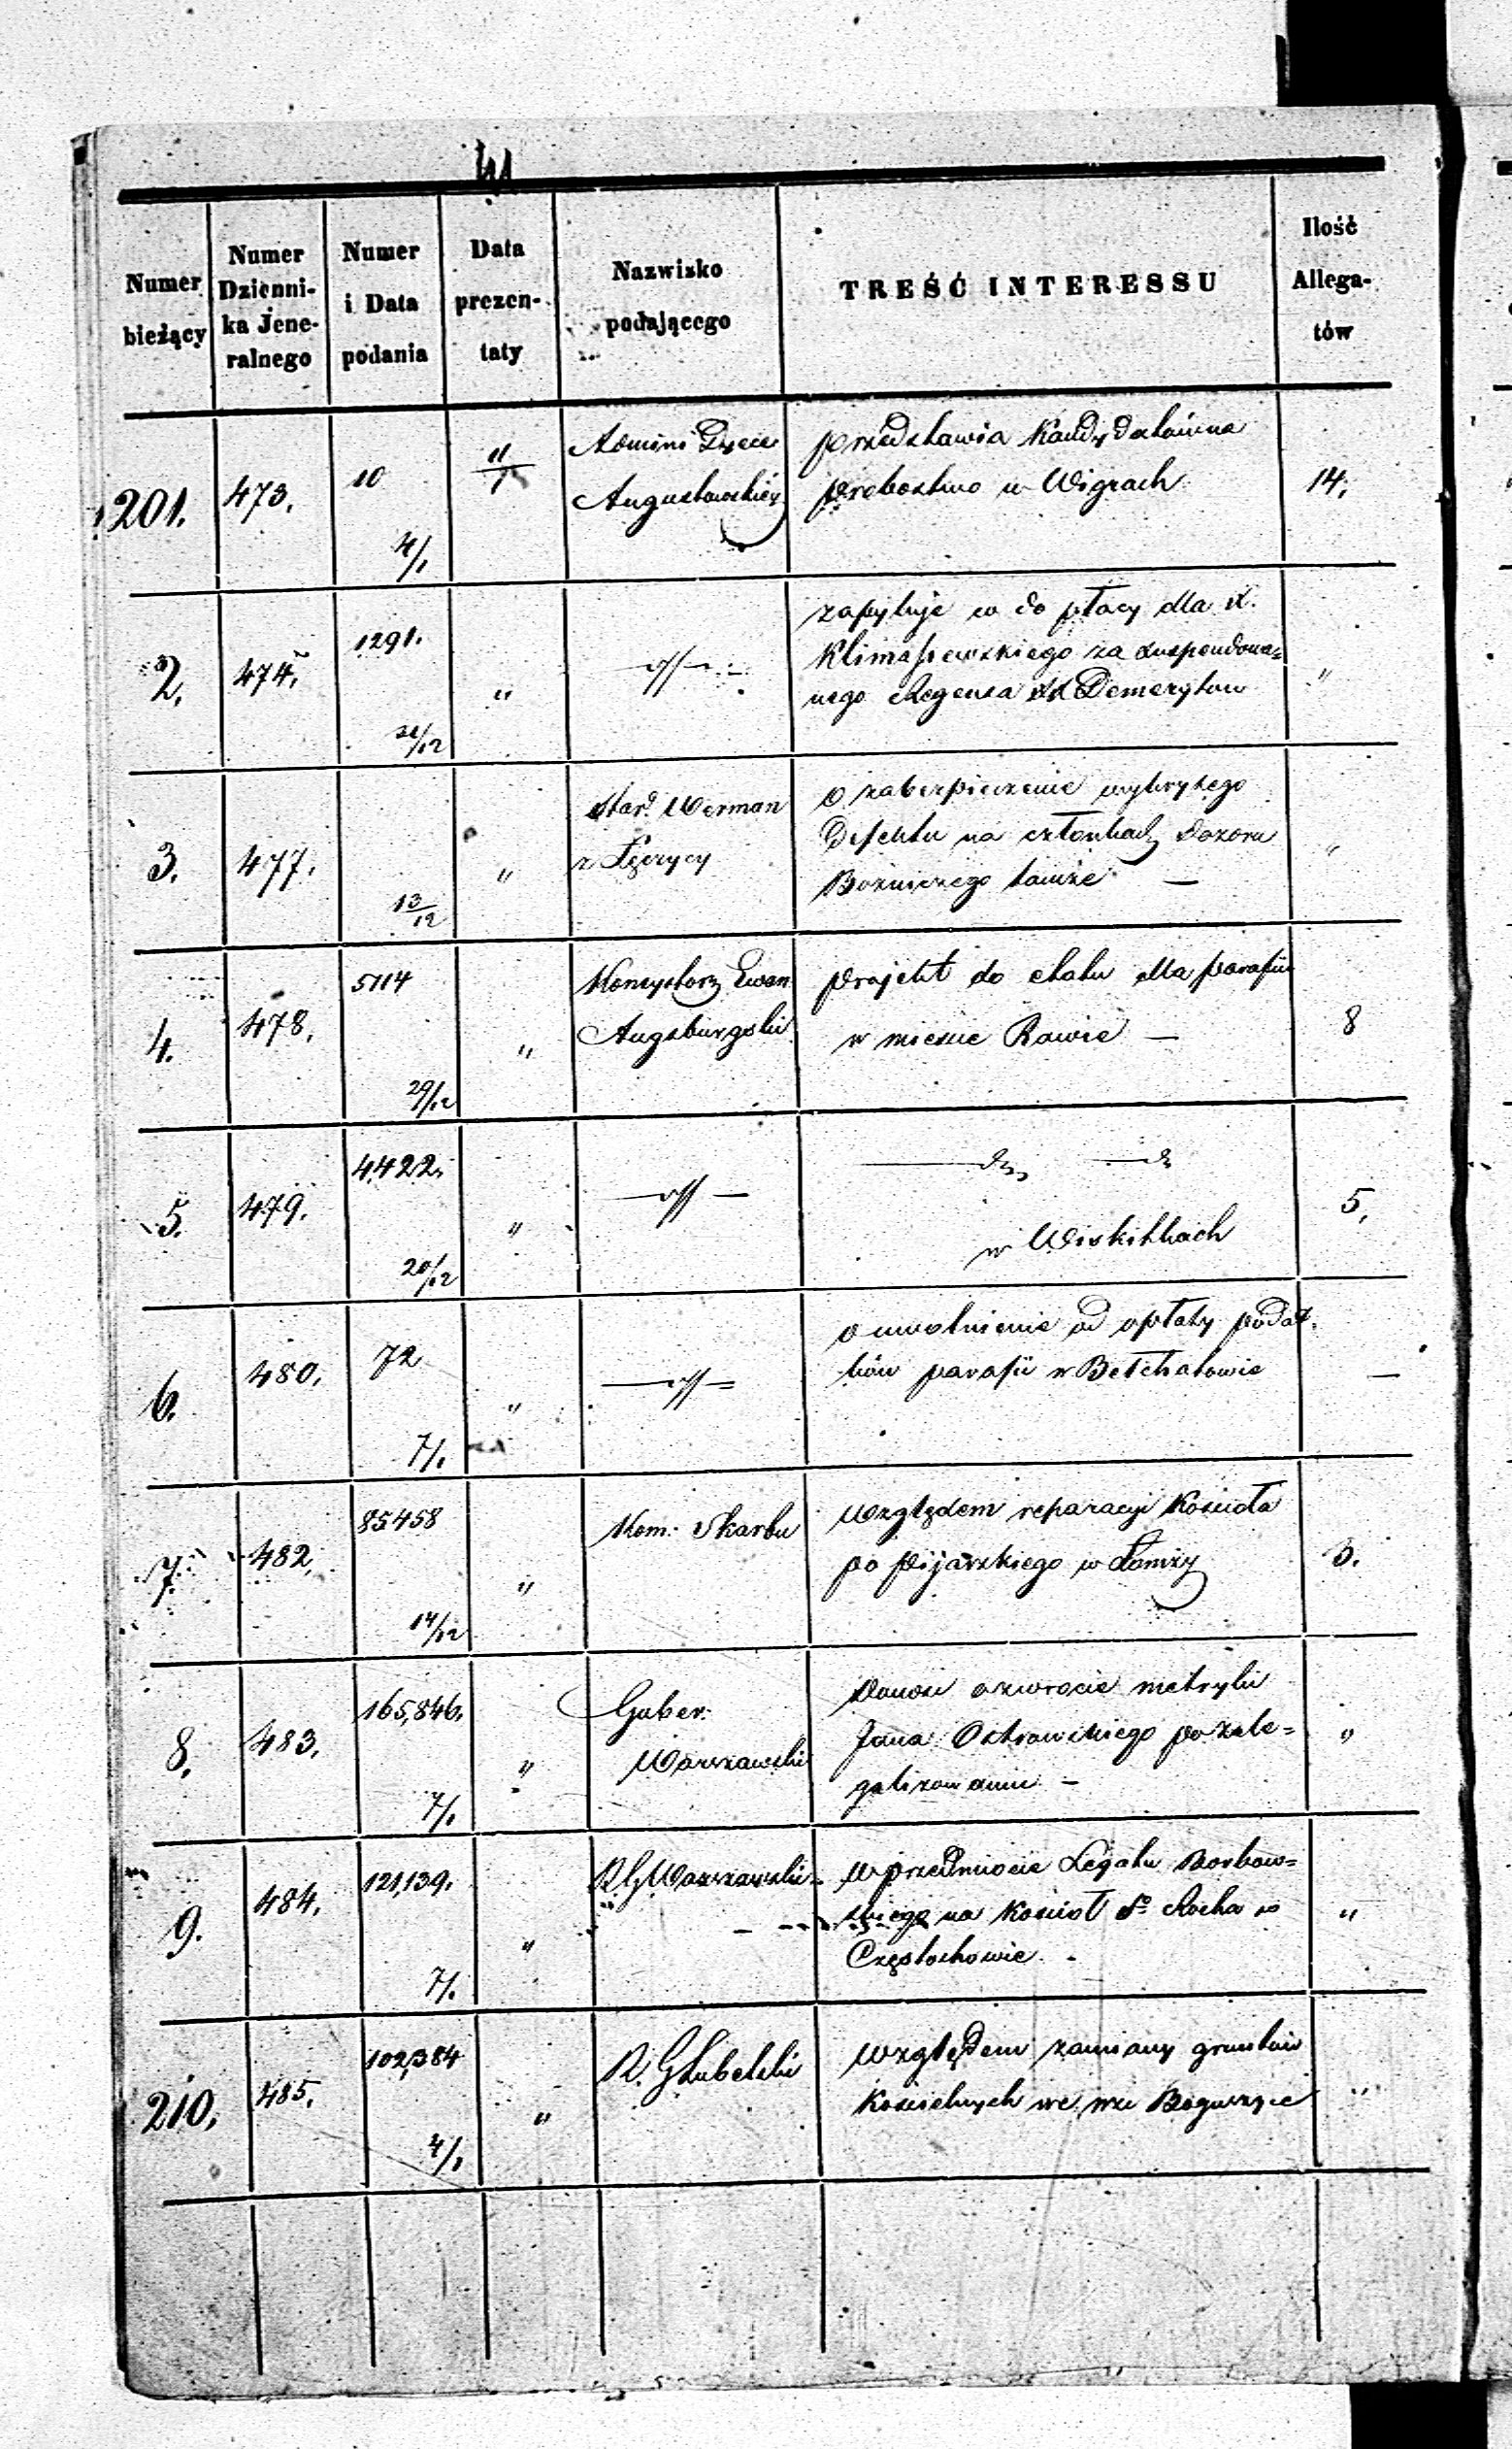 Numer bieżący
Numer Dzienni-ka Jene-ralnego
Numer i Data podania
Data prezen-taty
Nazwisko podającego
TREŚĆ INTERESSU
Ilość Allega-tów
201. 473. 10 4/1 11/1
Admini Dyece
Augustowskiej
przedstawia Kandydatów na
probostwo w Wigrach
14.
2. 474. 1291. 21/12 "
zapytuje co do płacy dla X.
Klimaszewskiego za suspendowa=
nego Regensa XX Demerytow
"
3. 477. 13/12 "
Star. Werman
z Łęczycy
o zabezpieczenie wykrytego
Defektu na członkach Dozoru
Bożniczego tamże —
"
4. 478. 5114 29/12 "
Konsystorz Ewan
Augsburgski
projekt do etatu dla parafii
w mieście Rawie —
8
5. 479. 4422. 20/12 "
w Wiskitkach
5.
6. 480. 72 7/1 "
o uwolnienie od opłaty podat
ków parafii w Bełchatowie
—
7. 482. 85458 14/12 "
Kom: Skarbu
względem reparacyi Kościoła
po pijarskiego w Łomży
3.
8. 483. 165,846. 7/1 "
Guber.
Warszawski
Donosi o zwrocie metryki
Jana Ostrowskiego po zale=
galizowaniu —
"
9. 484. 121,139. 7/1 "
R. G. Warszawski
w przedmiocie Legatu Borkow=
skiego na Kościoł Sgo Rocha w
Częstochowie
"
210. 485. 102,384 4/1 "
R. G Lubelski
względem zamiany gruntów
Kościelnych we wsi Boguszyce
"